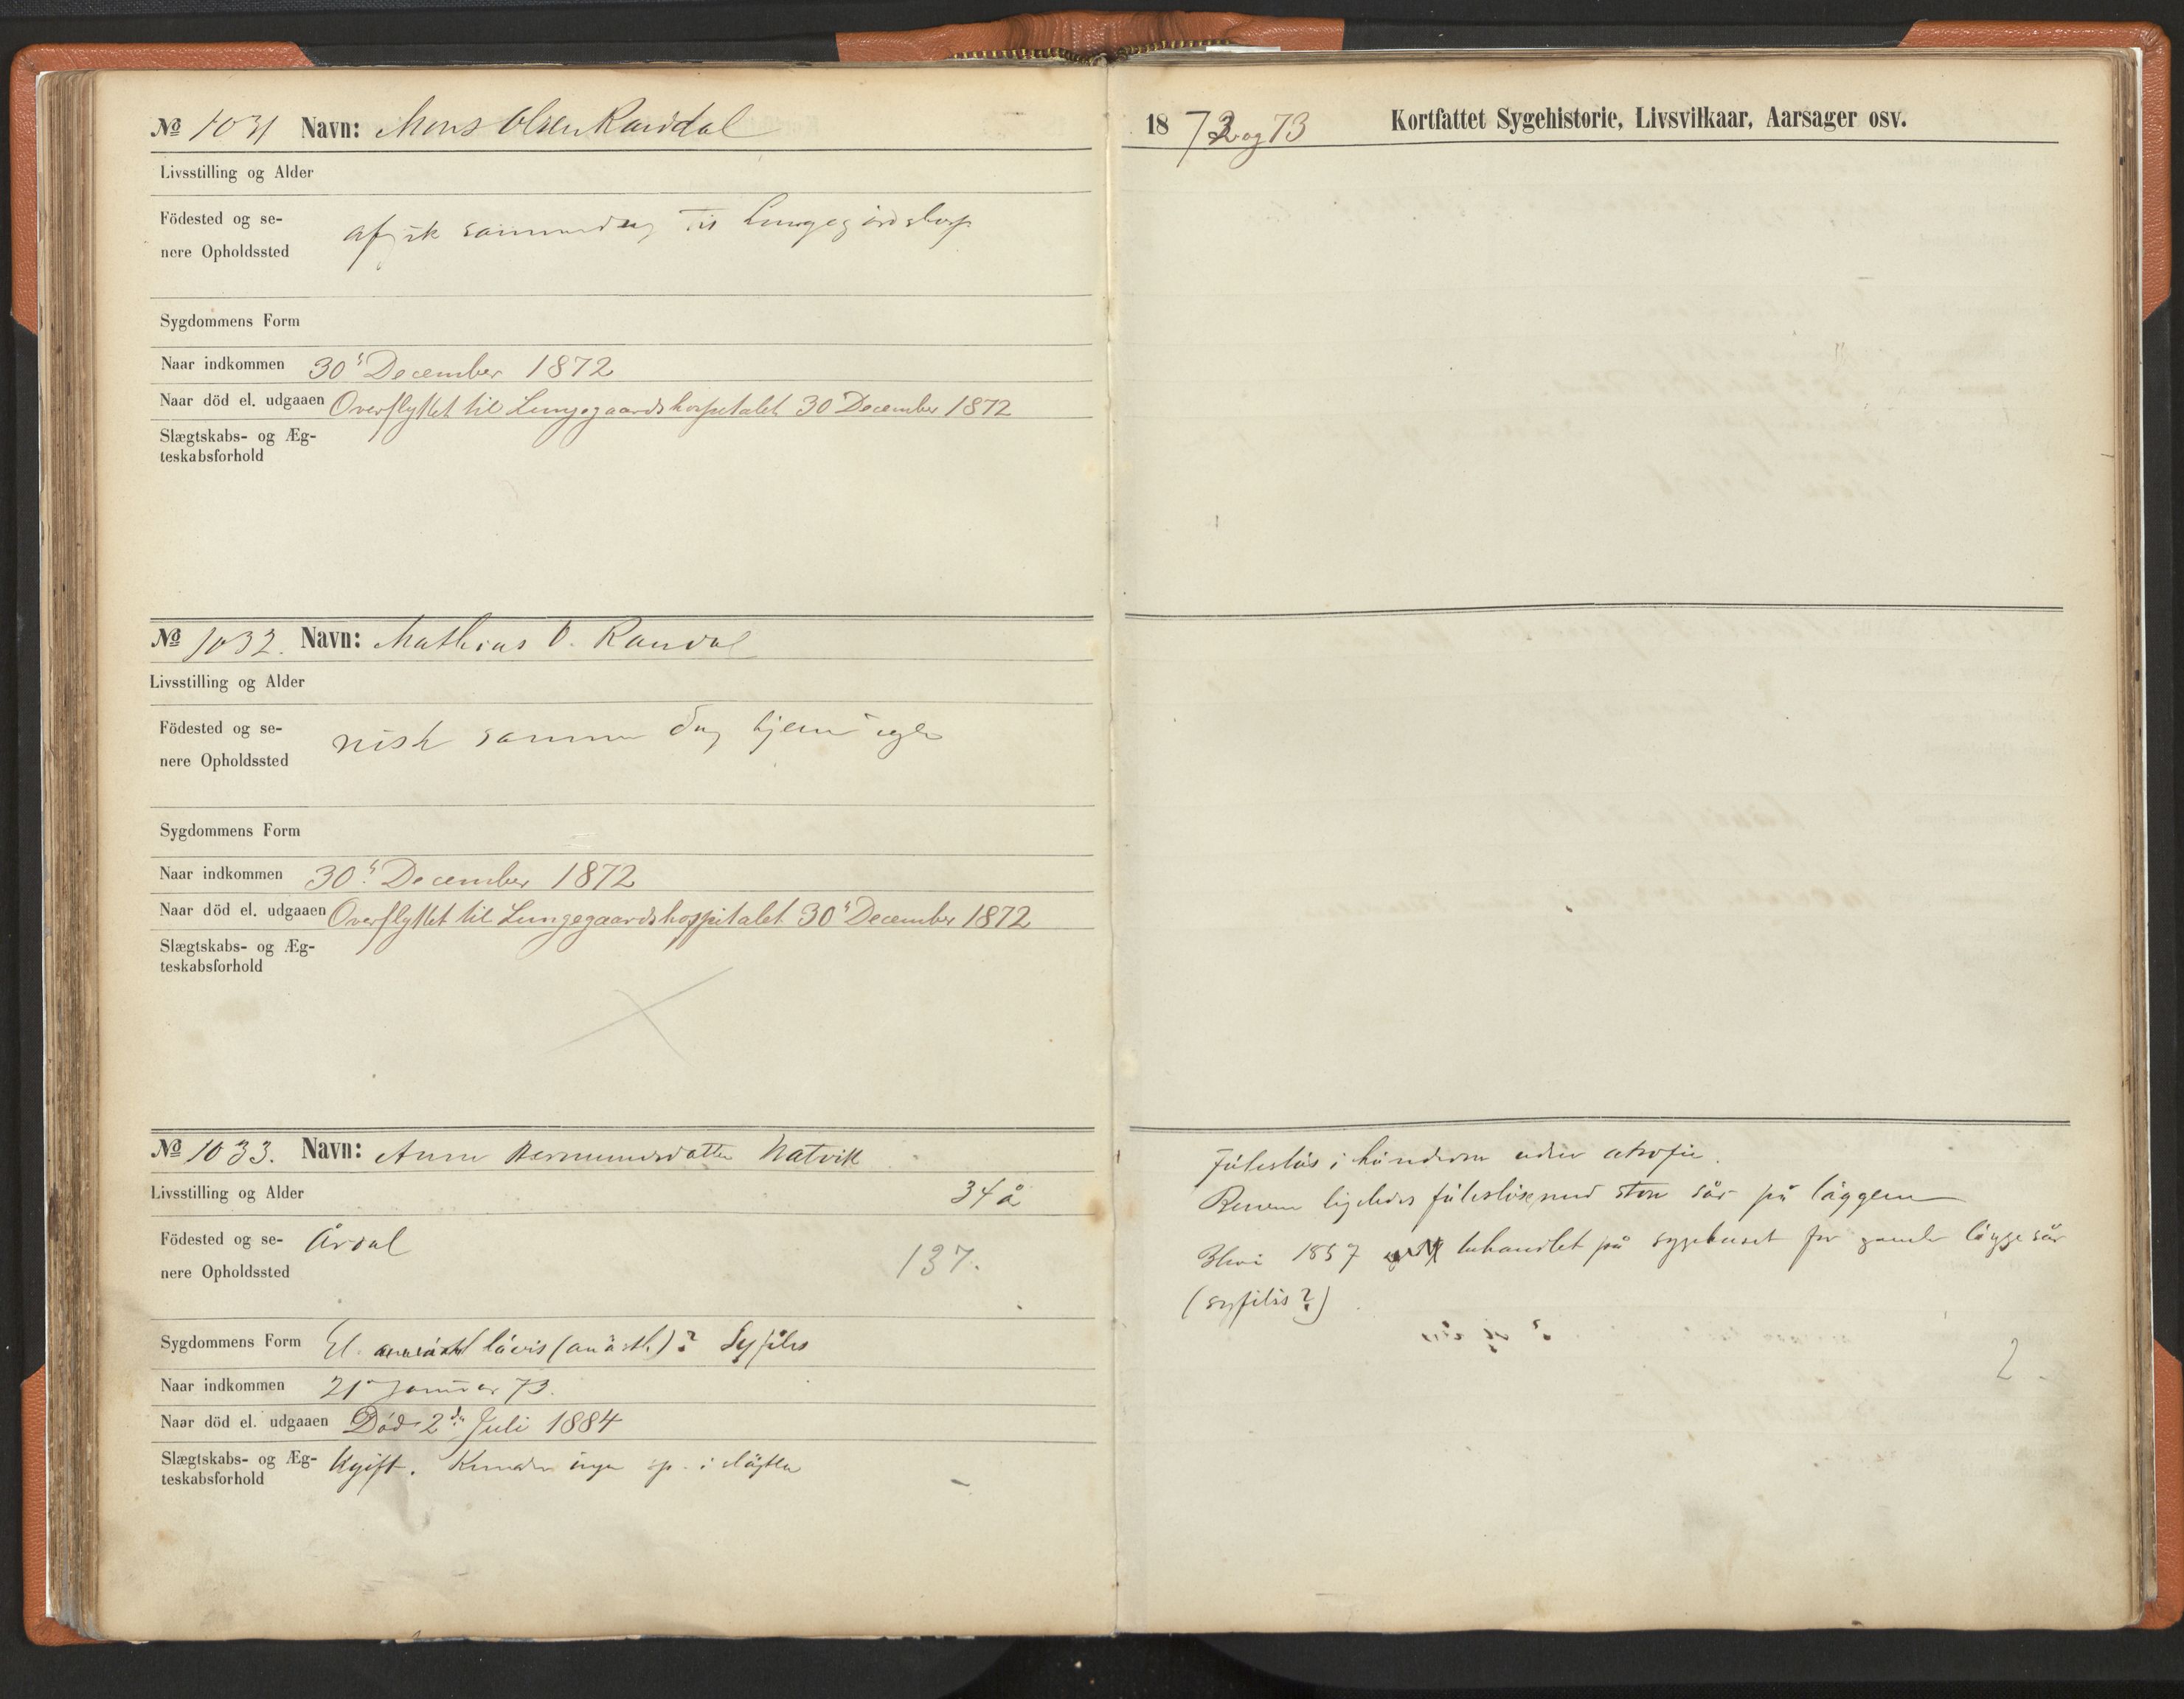 № 1031 Navn: Mons Olsen Randal
Livsstilling og Alder
Födested og se-
nere Opholdssted
afgik sammedag til Lungegårdshosp
Sygdommens Form
Naar indkommen 30' December 1872
Naar död el. udgaaen Overflyttet til Lungegaardshospitalet 30 December 1872
Slægtskabs- og Æg-
teskabsforhold
№ 1032. Navn: Mathias O. Randal
Livsstilling og Alder
Födested og se-
nere Opholdssted
samme dag hjem igen
Sygdommens Form
Naar indkommen 30' December 1872
Naar död el. udgaaen Overflyttet til Lungegaardshospitalet 30' December 1872
Slægtskabs- og Æg-
teskabsforhold
№ 1033. Navn: Anne Hermundsdatter Natvik
Livsstilling og Alder 34 å
Födested og se- Årdal
nere Opholdssted 137.
Sygdommens Form El. lävis (anästh.)? Syfilis
Naar indkommen 21 Januar 73.
Naar död el. udgaaen Död 2de Juli 1884
Slægtskabs- og Æg- Ugift. Kender ingen sp. i slägten
teskabsforhold
1872 og 73 Kortfattet Sygehistorie, Livsvilkaar, Aarsager osv.
Fölelslös i händerne uden atrofie.
Benene ligeledes fölelslöse, med store sår på läggene
Blev 1857 behandlet på sygehuset for gamle läggesår
(syfilis?)
2